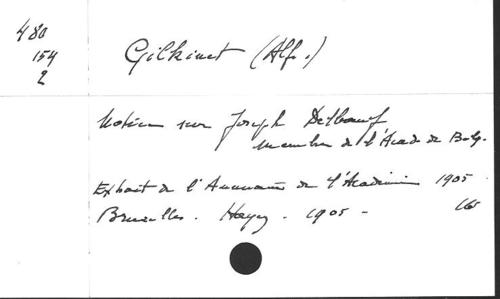 480
154
2
Gilkinet (Alf.)
Notice sur Joseph Delboeuf
Membre de l'Acad. de Belg.
Extrait de l'Annuaire de l'Académie 1905
Bruxelles. Hayez. 1905 -